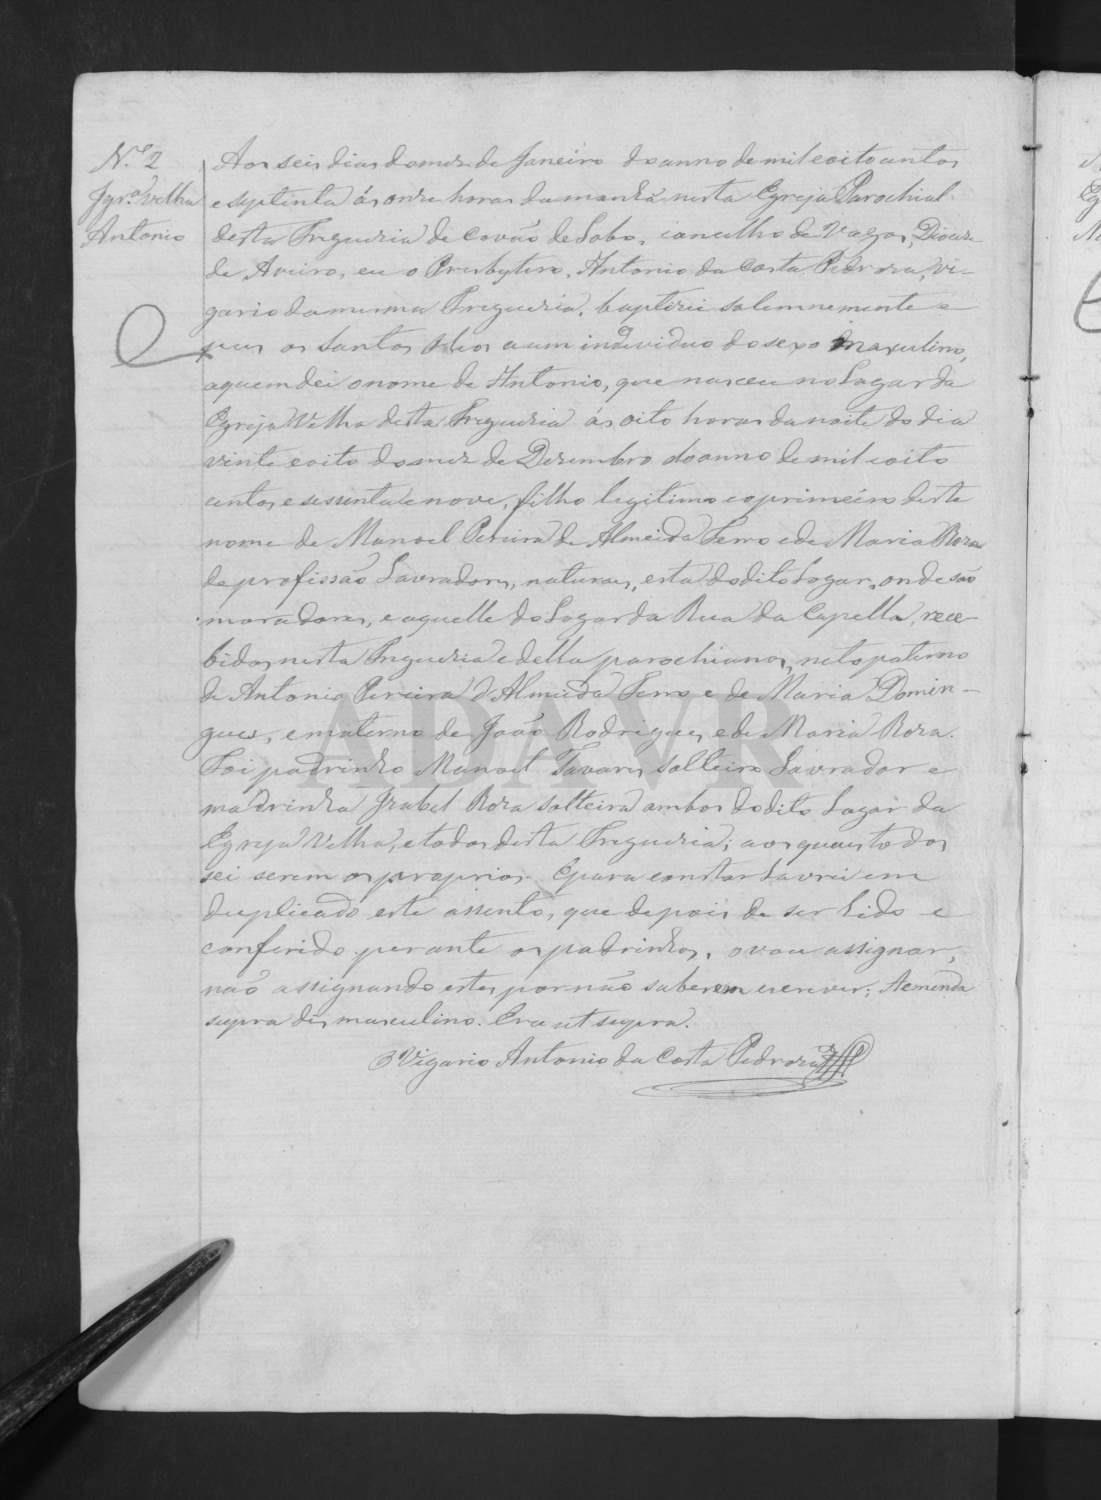 N.º 2
Igr.ª Velha
Antonio
Aos seis dias do mez de Janeiro do anno de mil e oito centos
e septenta ás onze horas da manhã nesta Egreja Parochial
desta Freguezia de Covão de Lobo, concelho de Vagos, Diocese
de Aveiro, eu o Presbytero, Antonio da Costa Pedroza, vi-
gario da mesma Freguezia, baptizei solemnemente e
puz os Santos Oleos a um individuo do sexo masculino,
a quem dei o nome de Antonio, que nasceu no Lagar da
Egreja Velha desta Freguezia ás oito horas da noite do dia
vinte e oito do mez de Dezembro do anno de mil e oito
centos e sessenta e nove, filho legitimo e o primeiro deste
nome de Manoel Pereira de Almeida Ferro e de Maria Roza
de profissão Lavradores, naturaes, esta do dito Logar, onde são
moradores, e aquelle do Logar da Rua da Capella, rece-
bidos nesta Freguezia e della parochianos, neto paterno
de Antonio Pereira d'Almeida Ferro e de Maria Domin-
gues, e materno de João Rodrigues e de Maria Roza.
Foi padrinho Manoel Tavares solteiro Lavrador e
madrinha Izabel Roza solteira ambos do dito Logar da
Egreja Velha, e todos desta Freguezia; aos quaes todos
sei serem os proprios. E para constar Lavrei em
duplicado este assento, que depois de ser Lido e
conferido perante os padrinhos, o vou assignar,
não assignando estes por não saberem escrever; A emenda
supra diz masculino. Era ut supra.
O Vigario Antonio da Costa Pedroza
ADAVR